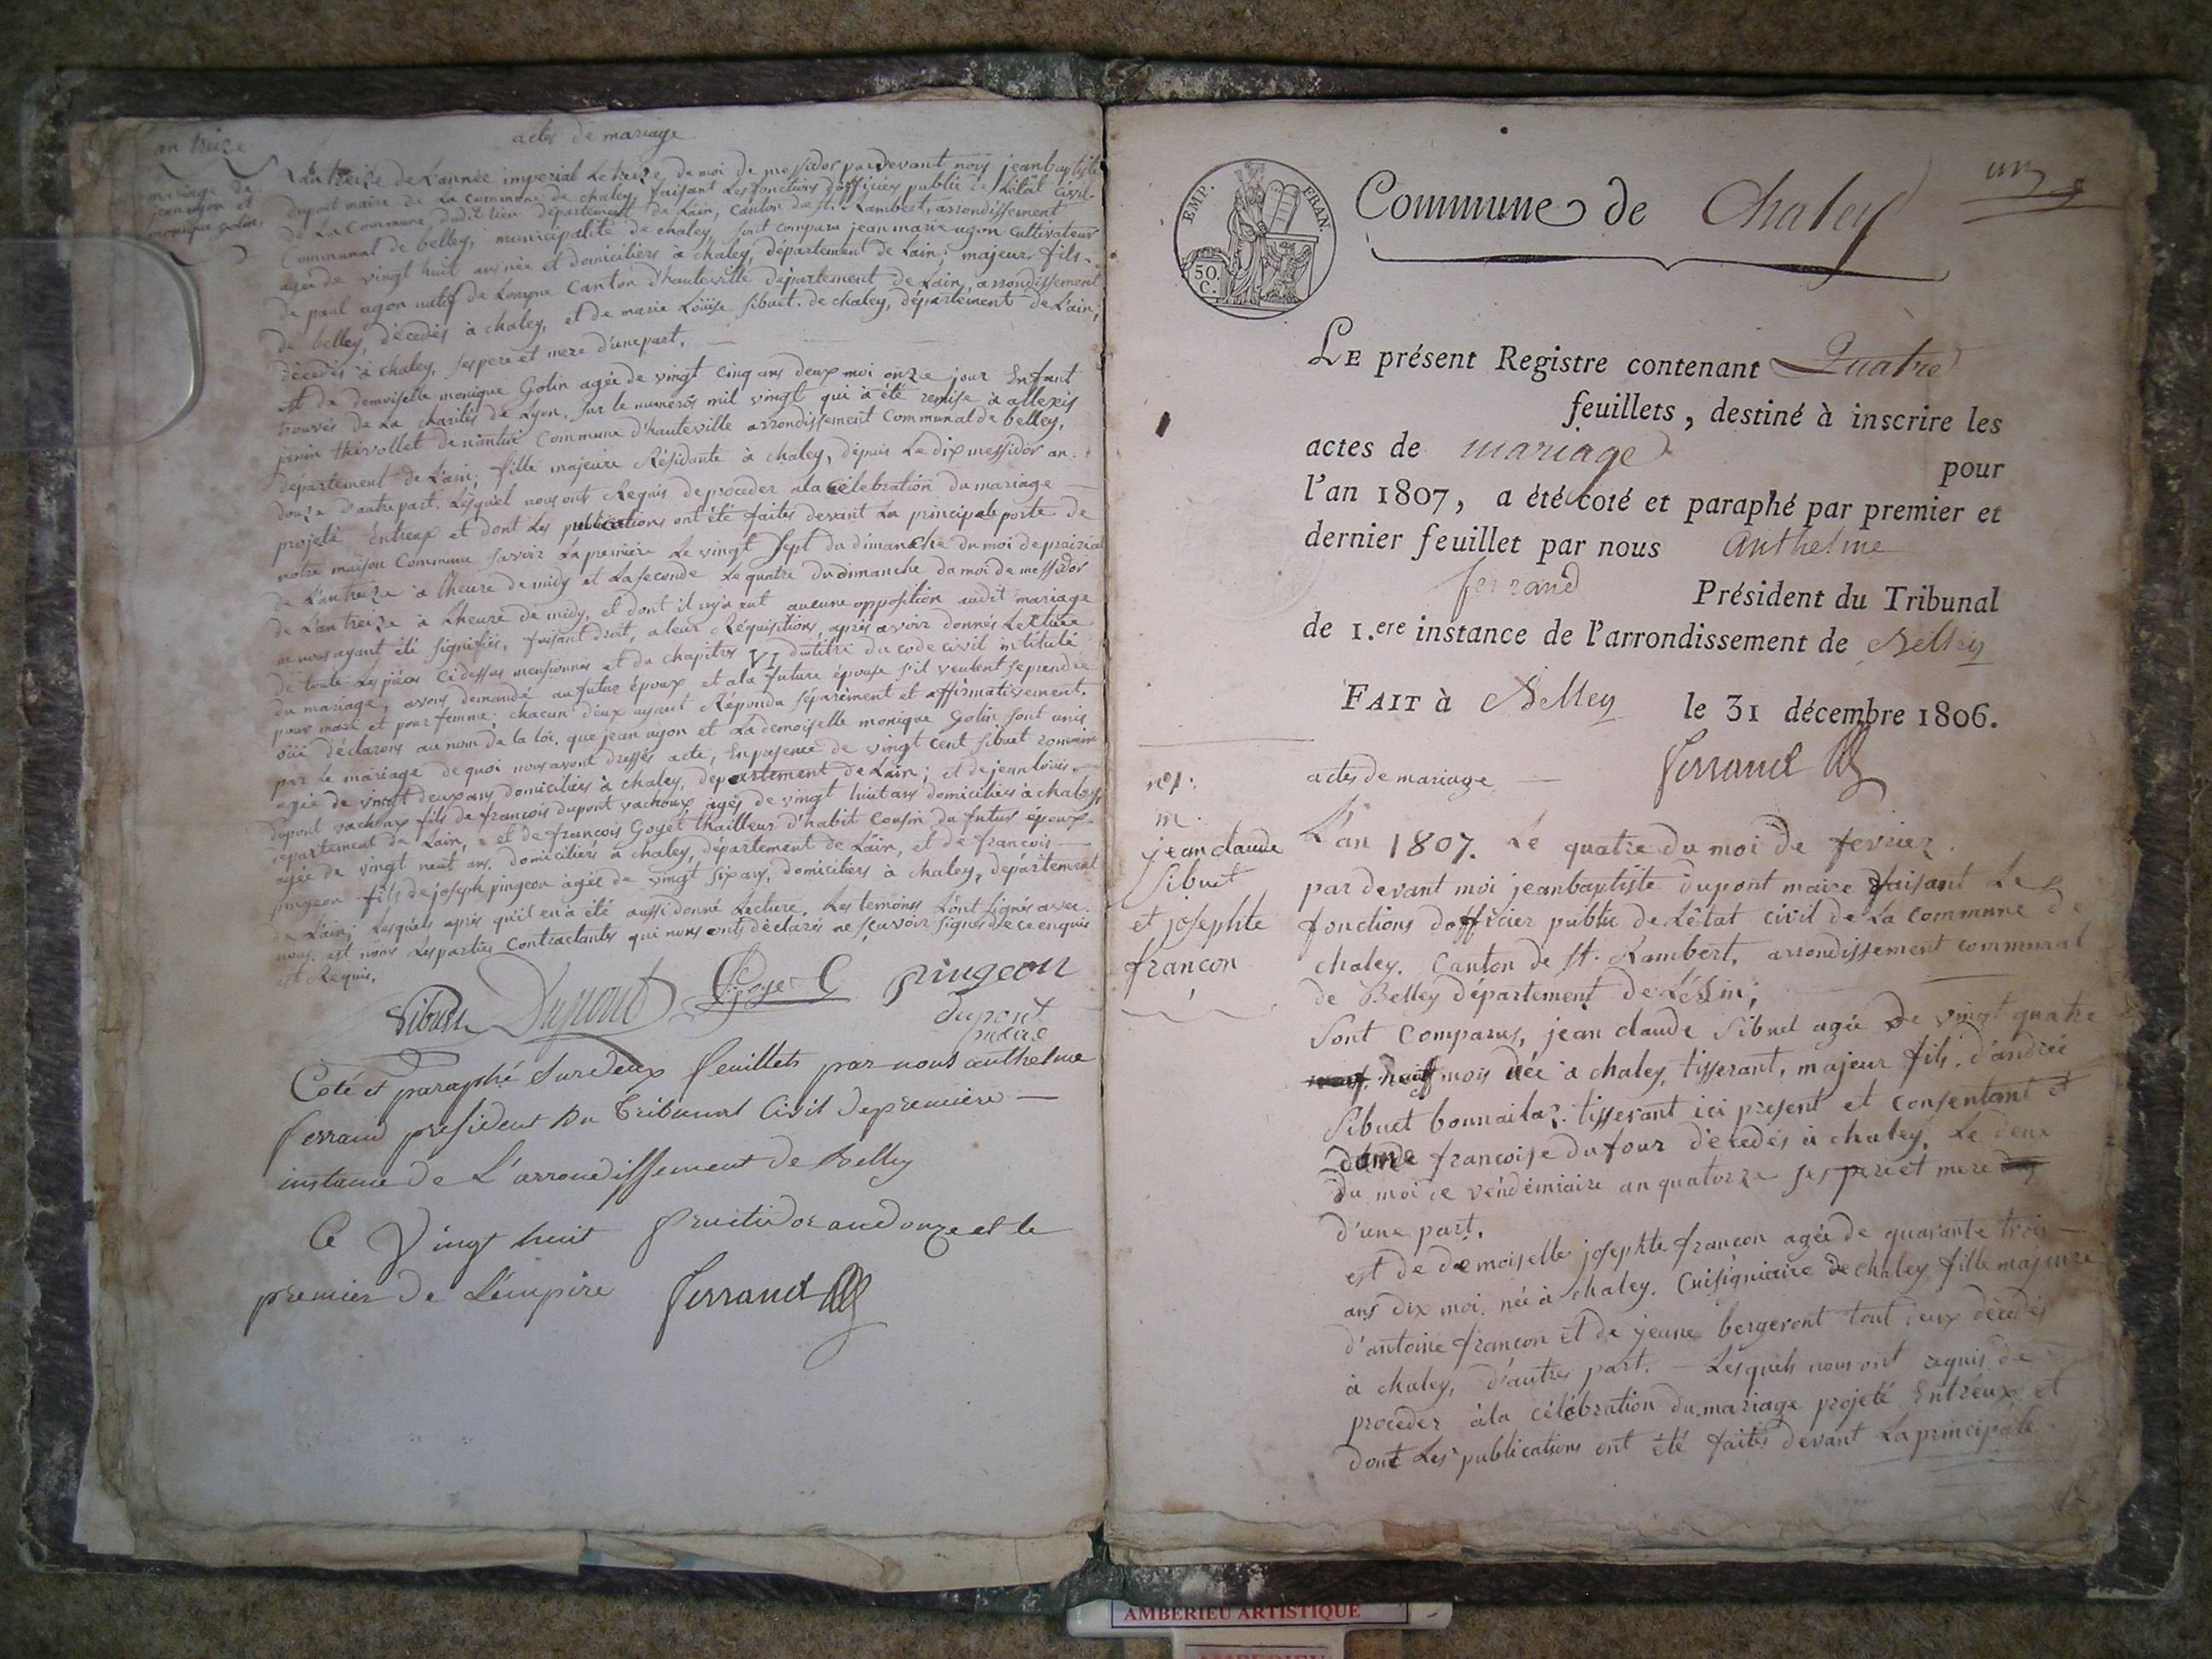 an treize
actes de mariage
mariage de
jean ugon et
monique golin,
L'an treize de L'année imperial Le treize de moi de messidor par devant nous jean baptiste
dupont maire de La Commune de chaley faisant Les fonctions d'officier public de L'état civil
de La Commune dudit lieu département de Lain, Canton de st. Rambert, arrondissement
Communal de belley, municipalité de chaley, sont comparu jean marie ugon Cultivateur
agée de vingt huit ans née et domiciliers à chaley, département de Lain; majeur fils
de paul ugon natif de Canton d'hauteville département de Lain, arrondissement
de belley, décedés à chaley, et de marie Loüise sibuet de chaley, département de L'ain,
décedés à chaley, ses pere et mere d'une part,
et de demoiselle monique Golin agée de vingt cinq ans deux moi onze jour Enfant
trouvés de La charités de Lyon, sur le numerôs mil vingt qui à été remise à allexis
janin thivollet de Commune d'hauteville arrondissement Communal de belley,
département de L'ain; fille majeure Résidante à chaley, dépuis Le dix messidor an
douze d'autre part. Lesquel nous ont Requis de proceder a la célebration du mariage
projeté Entreux et dont Les publications ont été faites devant La principale porte de
notre maison Commune savoir La premiere Le vingt sept du dimanche du moi de prairial
de L'an treize à L'heure de midy et La seconde Le quatre du dimanche du moi de messidor
de L'an treize à L'heure de midy, et dont il n'y a eut aucune opposition audit mariage
ne nous ayant été signifiés, faisant droit, a leur Réquisitions, après avoir donnés Lecture
de toute Les pièces cidessus mensionnés et du chapitre VI du titre du code civil intitulé
du mariage, avons demandé au futur époux et a la future épouse s'il veulent se prendre
pour mari et pour femme; chacun d'eux ayant Répondu séparément et affirmativement.
oüi déclarons au nom de la loi, que jean ugon et La demoiselle monique Golin sont unis
par le mariage de quoi nous avons dressés acte, En presence de vingt cent sibuet
agée de vingt deux ans domiciliés à chaley, département de Lain; et de jean loüis
dupont vachoux fils de francois dupont vachoux agés de vingt huit ans domiciliers à chaley
département de Lain, et de francois Goyet thailleur d'habit Cousin du futur époux
agée de vingt neuf ans, domiciliérs à chaley, département de Lain, et de francois
pingeon fils de joseph pingeon agée de vingt six ans, domiciliers à chaley, département
de Lain; Lesquels après qu'il en a été aussi donné Lecture, Les temoins L'ont signés avec
nous et non Les parties Contractantes qui nous ont déclarés ne sçavoir signés de ce enquis
et Requis,
Sibuet Dupont Goyet pingeon
dupont
maire
Coté et paraphé sur deux feuillets par nous anthelme
ferrand président du Tribunal Civil de premiere
instance de L'arrondissement de Belley
Ce Vingt huit fructidor an douze et le
premier de L'empire Ferrand
un
EMP. FRAN.
50.
C.
Commune de Chaley
LE présent Registre contenant Quatre
feuillets, destiné à inscrire les
actes de mariage pour
l'an 1807, a été coté et paraphé par premier et
dernier feuillet par nous Anthelme
ferrand Président du Tribunal
de 1.ere instance de l'arrondissement de Belley
FAIT à Belley le 31 décembre 1806.
Ferrand
actes de mariage
nº 1.
m.
jean claude
Sibuet
et josephte
francon
L'an 1807. Le quatre du moi de fevrier.
par devant moi jean baptiste dupont maire faisant Les
fonctions d'officier public de L'état civil de La Commune de
chaley. Canton de st. Rambert, arrondissement communal
de Belley département de L'Ain;
Sont Comparus, jean claude Sibuet agée de vingt quatre
neuf mois née à chaley, tisserant, majeur fils d'andrée
Sibuet bonnailaz. tisserant ici present et consentant et
francoise dufour décedés à chaley, Le deux
du moi de vendémiaire an quatorze ses pere et mere
d'une part,
est de demoiselle josephte francon agée de quarante trois
ans dix moi, née à chaley. Cuisigniaire de chaley fille majeure
d'antoine francon et de jeane bergeront tout deux décedés
à chaley, d'autre part. Lesquels nous ont requis de
proceder à la célébration du mariage projeté Entr'eux et
dont Les publications ont été faites devant La principale
AMBERIEU ARTISTIQUE
AMBERIEU